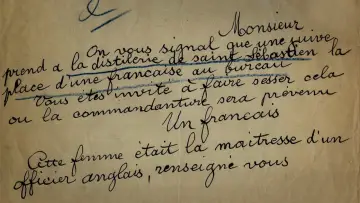 Monsieur
On vous signal que une suive
prend a la distilerie de saint Sébastien la
place d'une francaise au bureau
Vous etes invité à faire sesser cela
ou la commandanture sera prévenu
Un francais
Cette femme était la maitresse d'un
officier anglais, renseigné vous